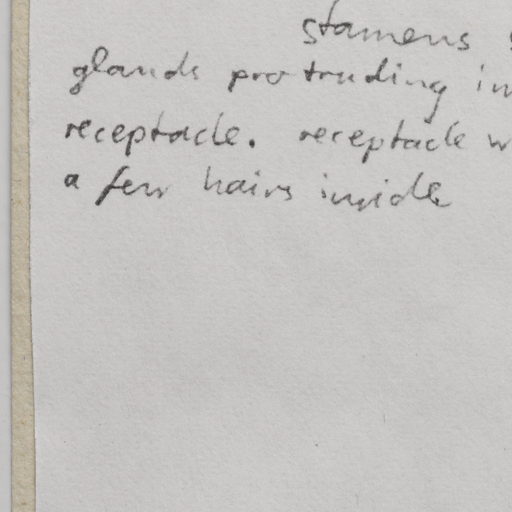 stamens
glands protruding in
receptacle. receptacle w
a few hairs inside